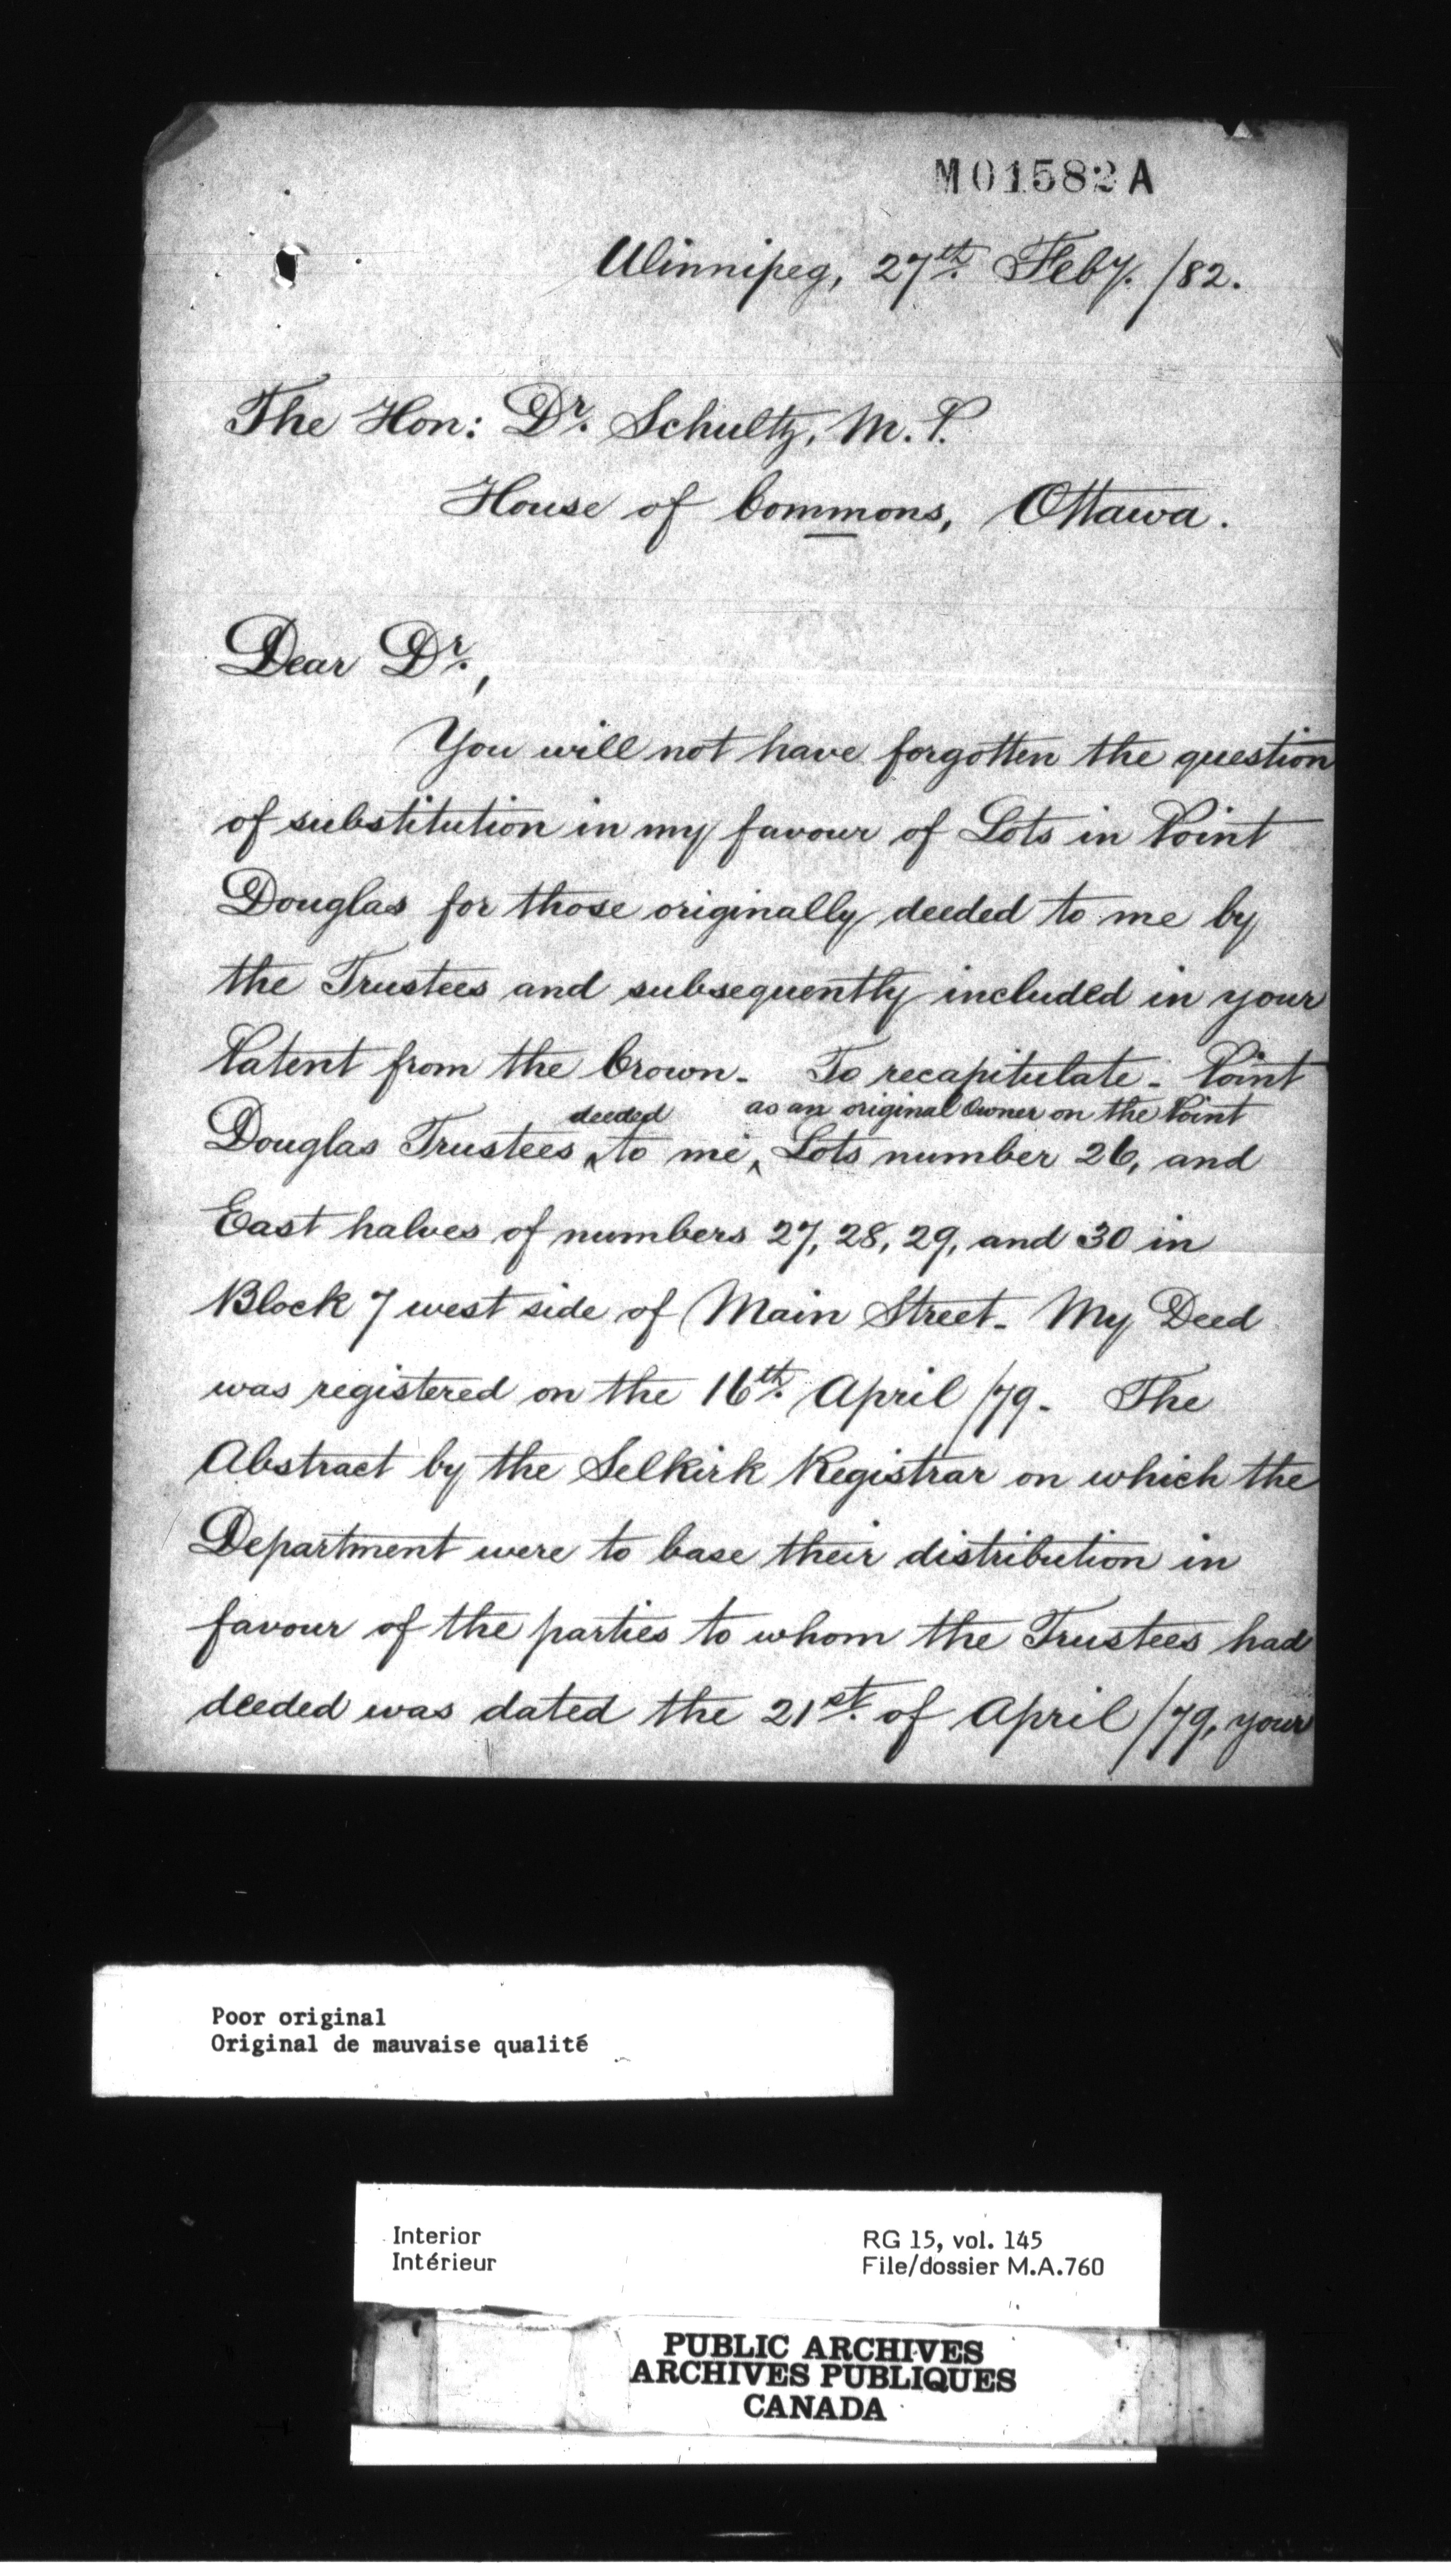 M01582A
Winnipeg, 27th. Feby. /82.
The Hon: Dr. Schultz, M.P.
House of Commons, Ottawa.
Dear Dr.,
You will not have forgotten the question
of substitution in my favour of Lots in Point
Douglas for those originally deeded to me by
the Trustees and subsequently included in your
Patent from the Crown. To recapitulate - Point
deeded as an original Owner on the Point
Douglas Trustees ‸ to me, ‸ Lots number 26, and
East halves of numbers 27, 28, 29, and 30 in
Block 7 west side of Main Street. My Deed
was registered on the 16th. April /79. The
Abstract by the Selkirk Registrar on which the
Department were to base their distribution in
favour of the parties to whom the Trustees had
deeded was dated the 21st. of April /79, your
Poor original
Original de mauvaise qualité
Interior RG 15, vol. 145
Intérieur File/dossier M.A.760
PUBLIC ARCHIVES
ARCHIVES PUBLIQUES
CANADA